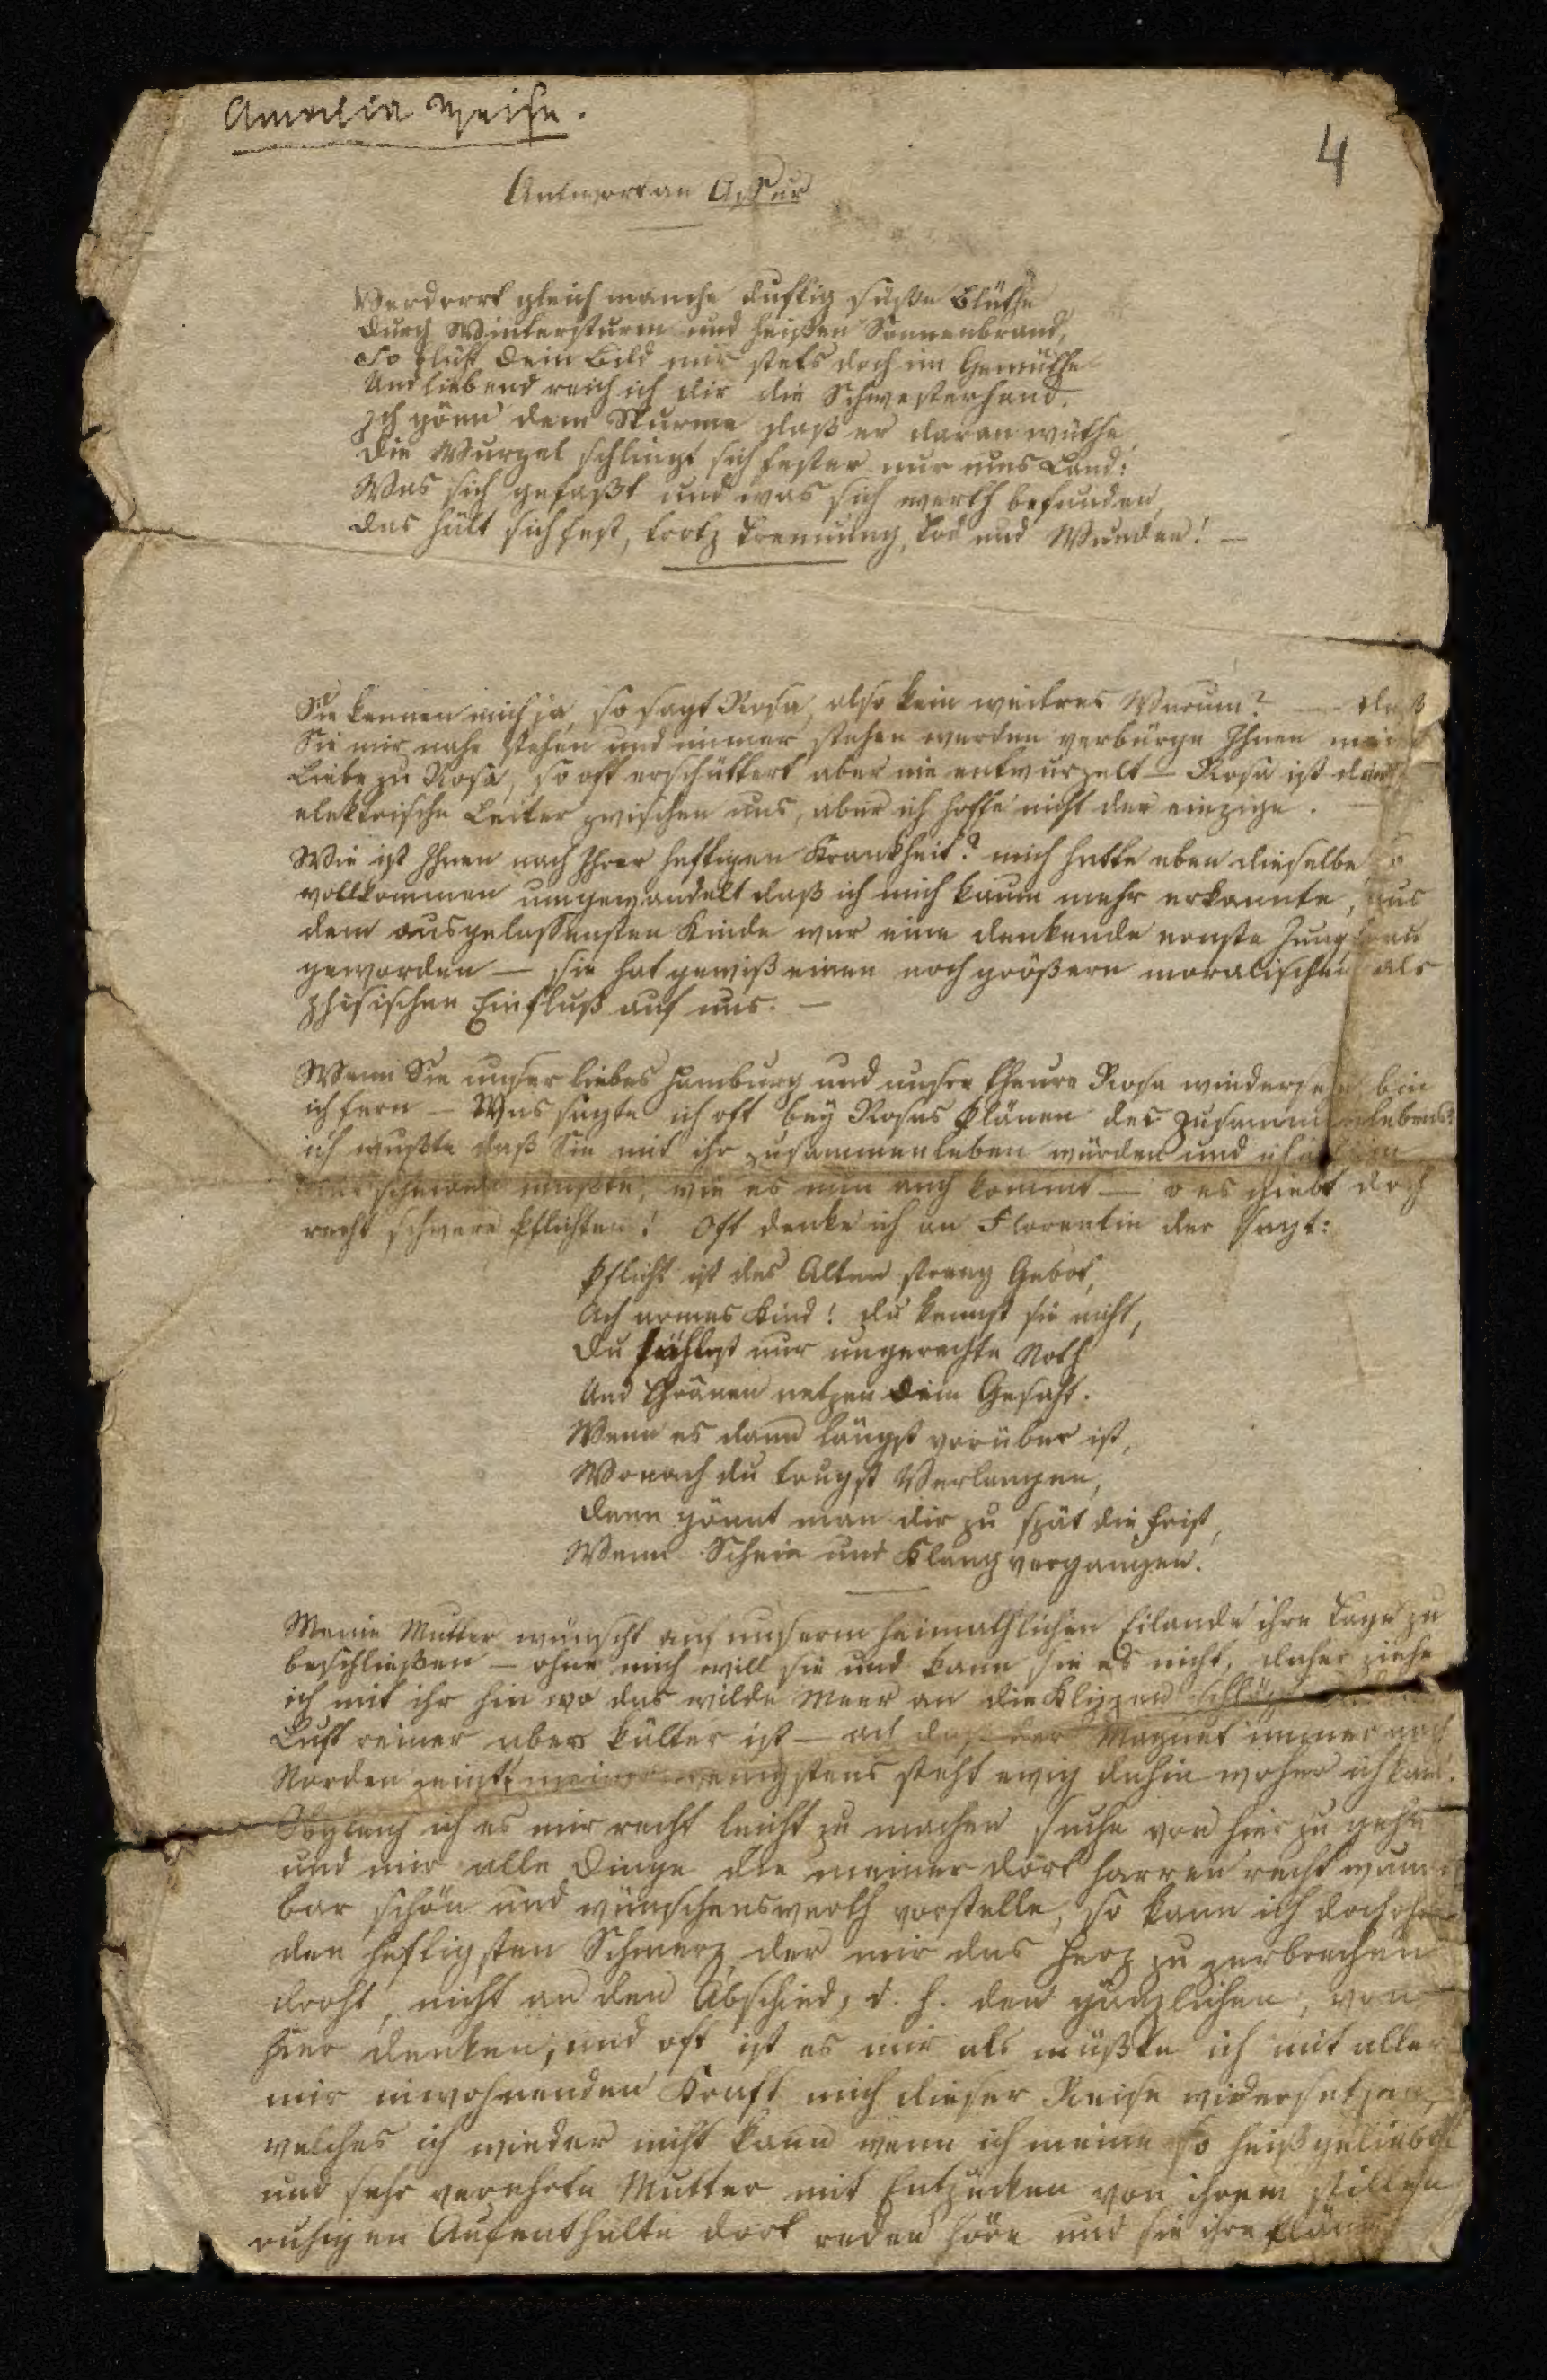 Amalia Weise.
4
Antwort an Assur
Verdorrt gleich manche duftig süße Blüthe
Durch Wintersturm und heißen Sonnenbrand,
So blüht Dein Bild mir stets doch im Gemüthe
Und liebend reich ich dir die Schwesterhand.
Ich gönn dem Sturme daß er daran wüthe,
Die Wurzel schlingt sich fester nur ums Land:
Was sich gefaßt und was sich werth befunden,
Das hält sich fest, trotz Trennung, Tod und Wunden! —
Sie kennen mich ja, so sagt Rosa, also kein weitres Warum? — daß
Sie mir nahe stehen und immer stehen werden verbürge Ihnen meine
Liebe zu Rosa, so oft erschüttert aber nie entwurzelt — Rosa ist der
elektrische Leiter zwischen uns, aber ich hoffe nicht der einzige. —
Wie ist Ihnen nach Ihrer heftigen Krankheit? mich hatte eben dieselbe so
vollkommen umgewandelt daß ich mich kaum mehr erkannte, aus
dem ausgelassensten Kinde war eine denkende ernste Jungfrau
geworden — sie hat gewiß einen noch größern moralischen als
phisischen Einfluß auf uns. —
Wenn Sie unser liebes Hamburg und unsre theure Rosa wiedersehen, bin
ich fern — Was sagte ich oft bey Rosas Plänen des Zusammenlebens?
ich wußte daß Sie mit ihr zusammenleben würden und ich
mußte, wie es nun auch kommt — o es giebt doch
recht schwere Pflichten! Oft denke ich an Florentin der sagt:
Pflicht ist des Alten streng Gebot,
Ach armes Kind! du kennst sie nicht,
Du fühlest nur ungerechte Noth
Und Thränen netzen Dein Gesicht.
Wenn es dann längst vorüber ist,
Wonach du trugst Verlangen,
Dann gönnt man dir zu spät die Frist,
Wenn Schein und Klang vergangen.
Meine Mutter wünscht auf unserm heimathlichen Eilande ihre Tage zu
beschließen — ohne mich will sie und kann sie es nicht, daher ziehe
ich mit ihr hin wo das wilde Meer an die Klippen schlägt
Luft reiner aber kälter ist — ach daß der Magnet immer nach
Norden zeigt, meiner wenigstens steht ewig dahin woher ich kam.
Obgleich ich es mir recht leicht zu machen suche von hier zu gehen
und mir alle Dinge die meiner dort harren recht wunder
bar schön und wünschenswerth vorstelle, so kann ich doch ohne
den heftigsten Schmerz, der mir das Herz zu zerbrechen
droht, nicht an den Abschied, d. h. den gänzlichen, von
hier denken, und oft ist es mir als müßte ich mit aller
mir inwohnenden Kraft mich dieser Reise widersetzen,
welches ich wieder nicht kann wenn ich meine so heißgeliebte
und sehr verehrte Mutter mit Entzücken von ihrem stillen
ruhigen Aufenthalte dort reden höre und sie ihre Pläne